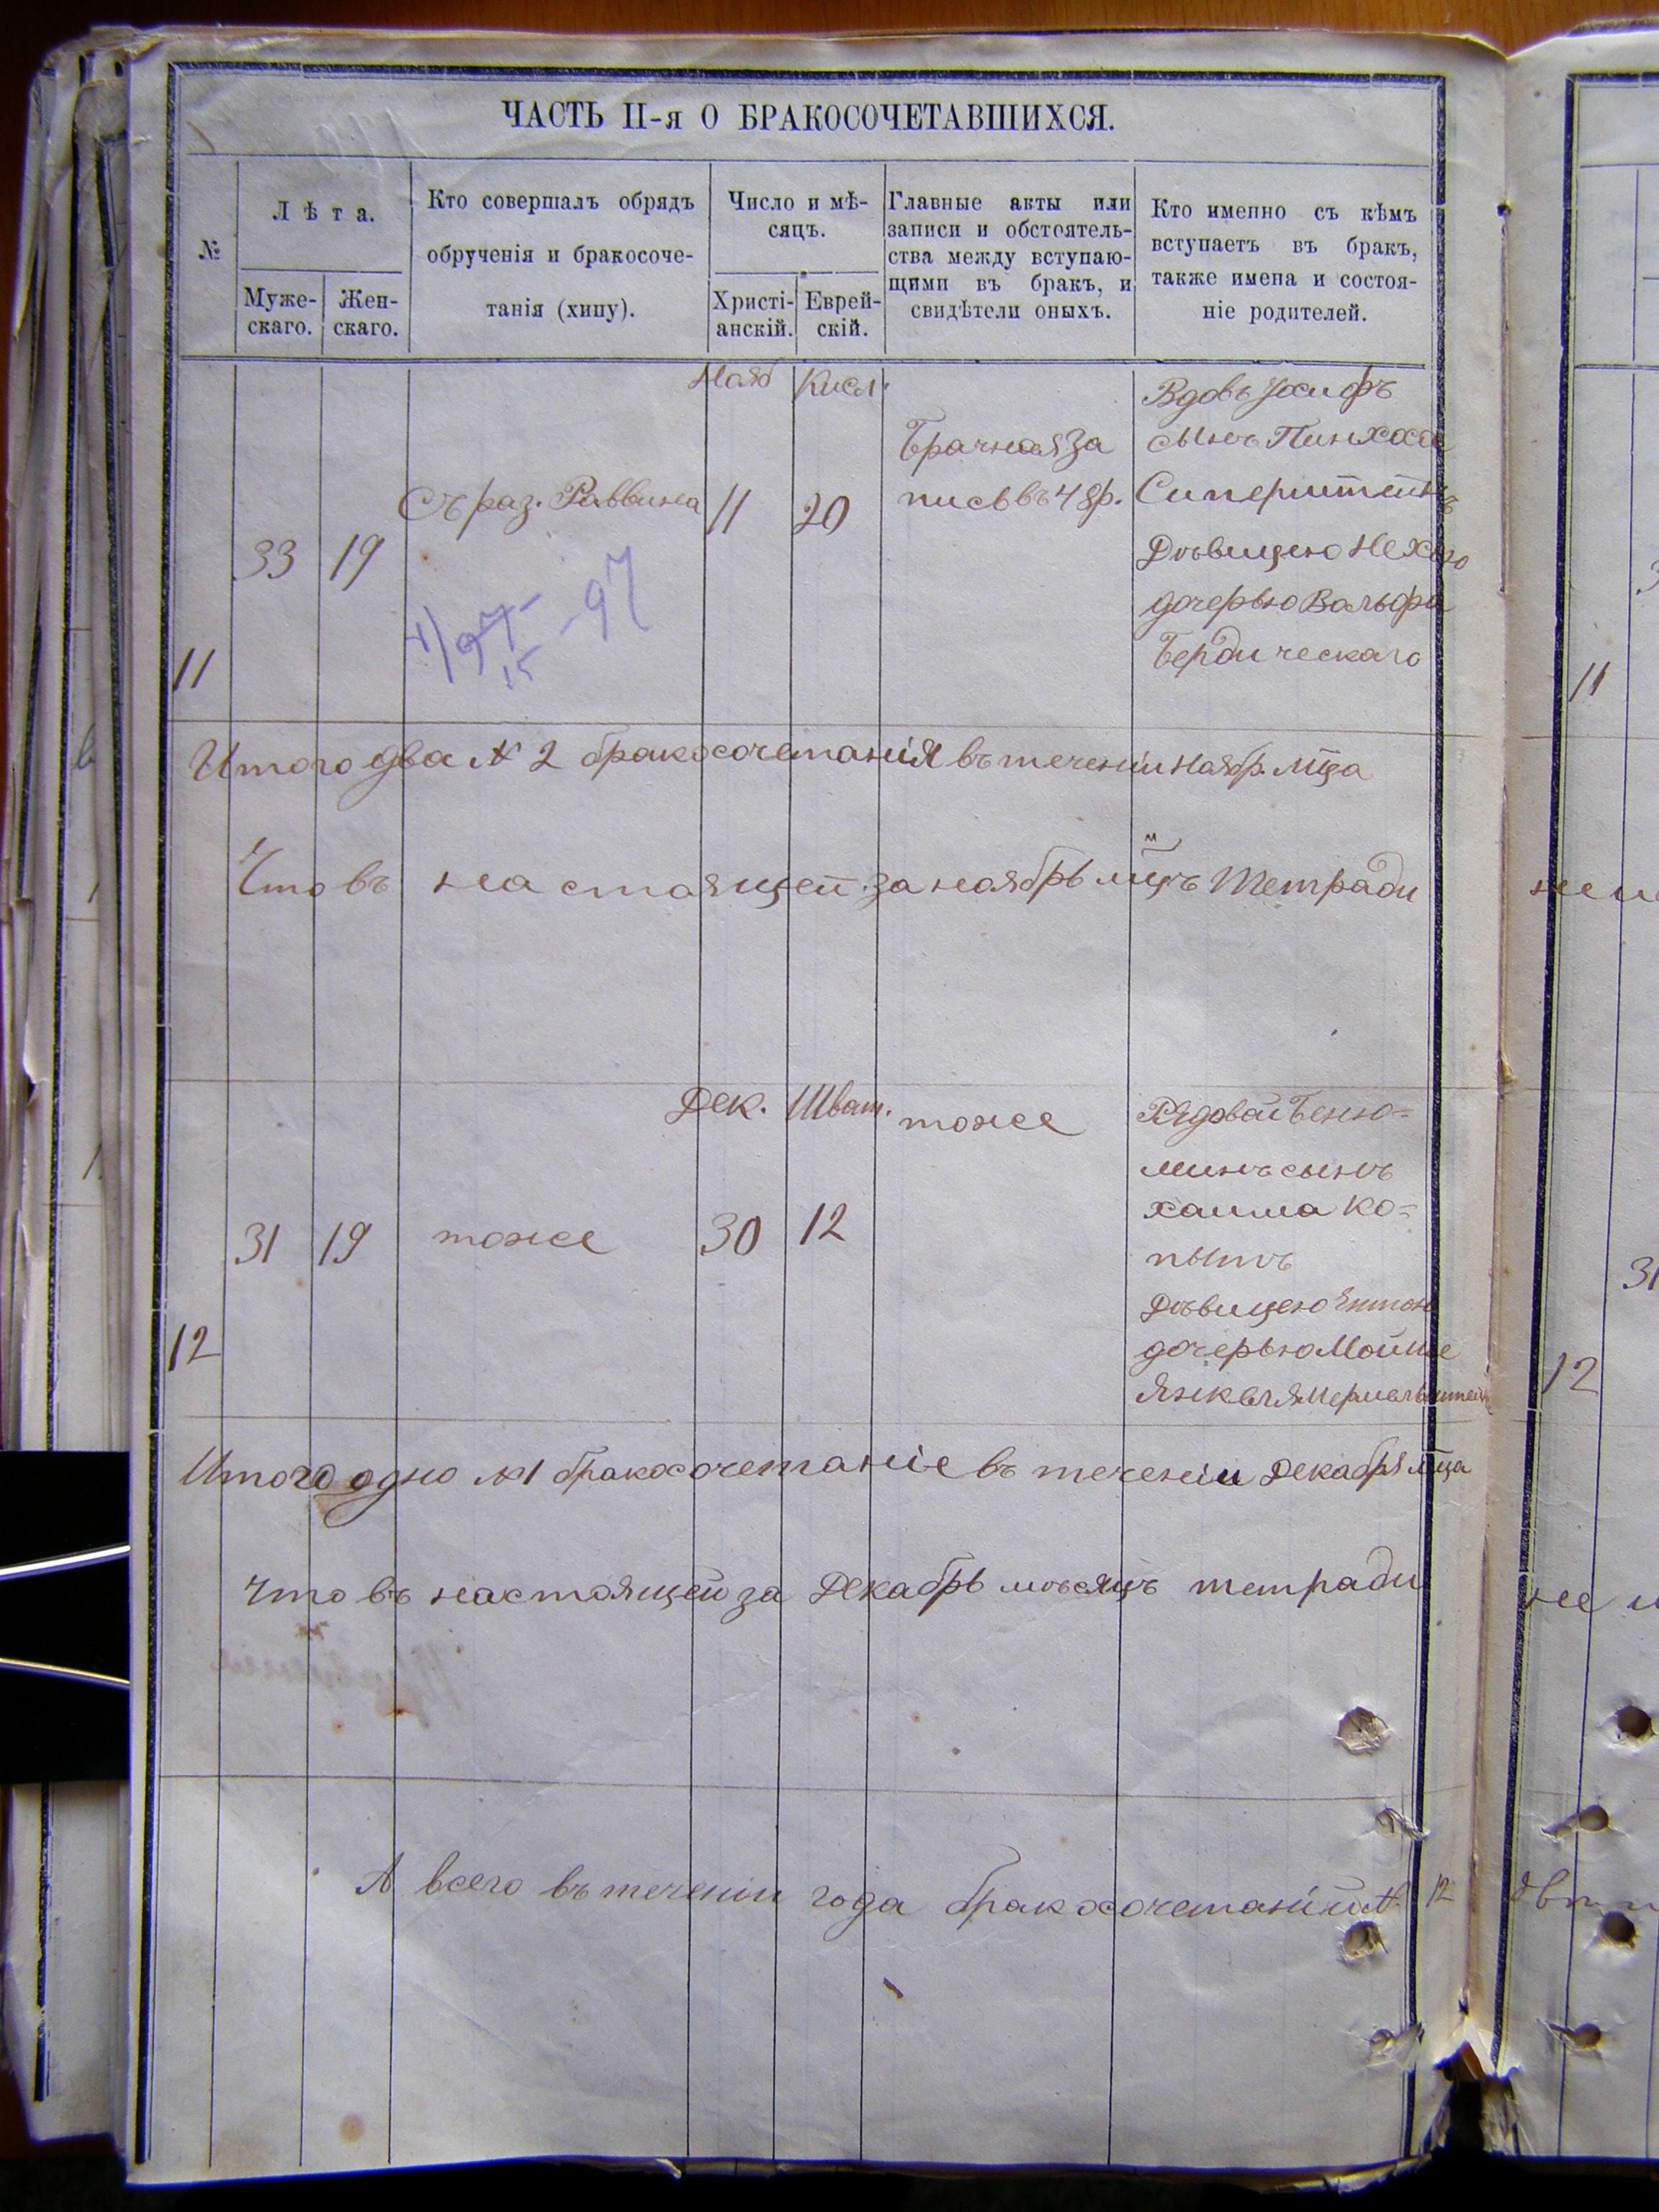 ЧАСТЬ II-я О БРАКОСОЧЕТАВШИХСЯ.
№
Лѣта.
Муже-
скаго.
Жен-
скаго.
Кто совершалъ обрядъ
обрученія и бракосоче-
танія (хипу).
Число и мѣ-
сяцъ.
Христі-
анскій.
Еврей-
скій.
Главные акты или
записи и обстоятель-
ства между вступаю-
щими въ бракъ, и
свидѣтели оныхъ.
Кто именно съ кѣмъ
вступаетъ въ бракъ,
также имена и состоя-
ніе родителей.
11
33
19
Съ раз. Раввина
Нояб
11
Кисл.
20
Брачная За
пись въ 48р.
Вдовъ Іосифъ
сынъ Пинхоса
Сиперштейнъ
Дѣвицею Нехою
дочерью Вольфа
Бердическаго
97
15
-97
11
Итого два № 2 бракосочетанія въ теченіи Ноябр. мца
Что въ настоящей за ноябрь мцъ Тетради
12
31
19
тоже
Дек.
30
Шват.
12
тоже
Рядовой Беню-
минъ сынъ
Хаима Ко-
пытъ
Дѣвицею
дочерью Мойше
Янкеля
12
31
Итого одно №1 бракосочетаніе въ теченіи Декабря мца
Что въ настоящей за Декабрь мѣсяцъ тетради
А всего въ теченіи года бракосочетаній № 12